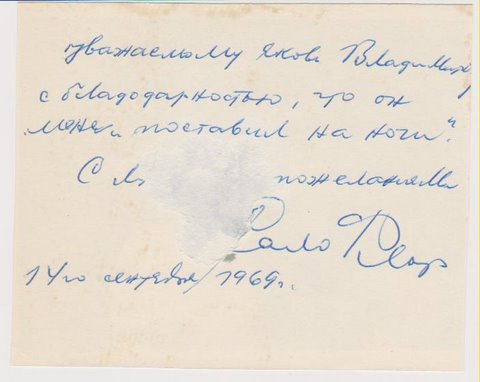 уважаемому Якову Владимиру
с благодарностью, что он
„меня поставил на ноги".
С пожеланиями
14го сентября 1969г.